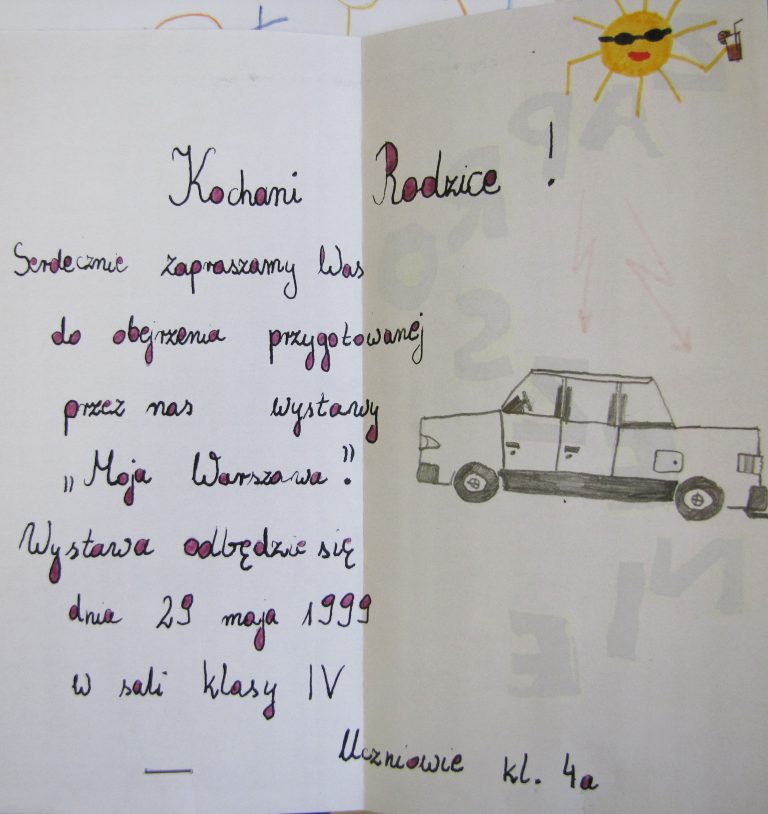 Kochani Rodzice !
Serdecznie zapraszamy Was
do obejrzenia przygotowanej
przez nas wystawy
„Moja Warszawa".
Wystawa odbędzie się
dnia 29 maja 1999
w sali klasy IV
Uczniowie kl. 4a
ZAPROSZENIE